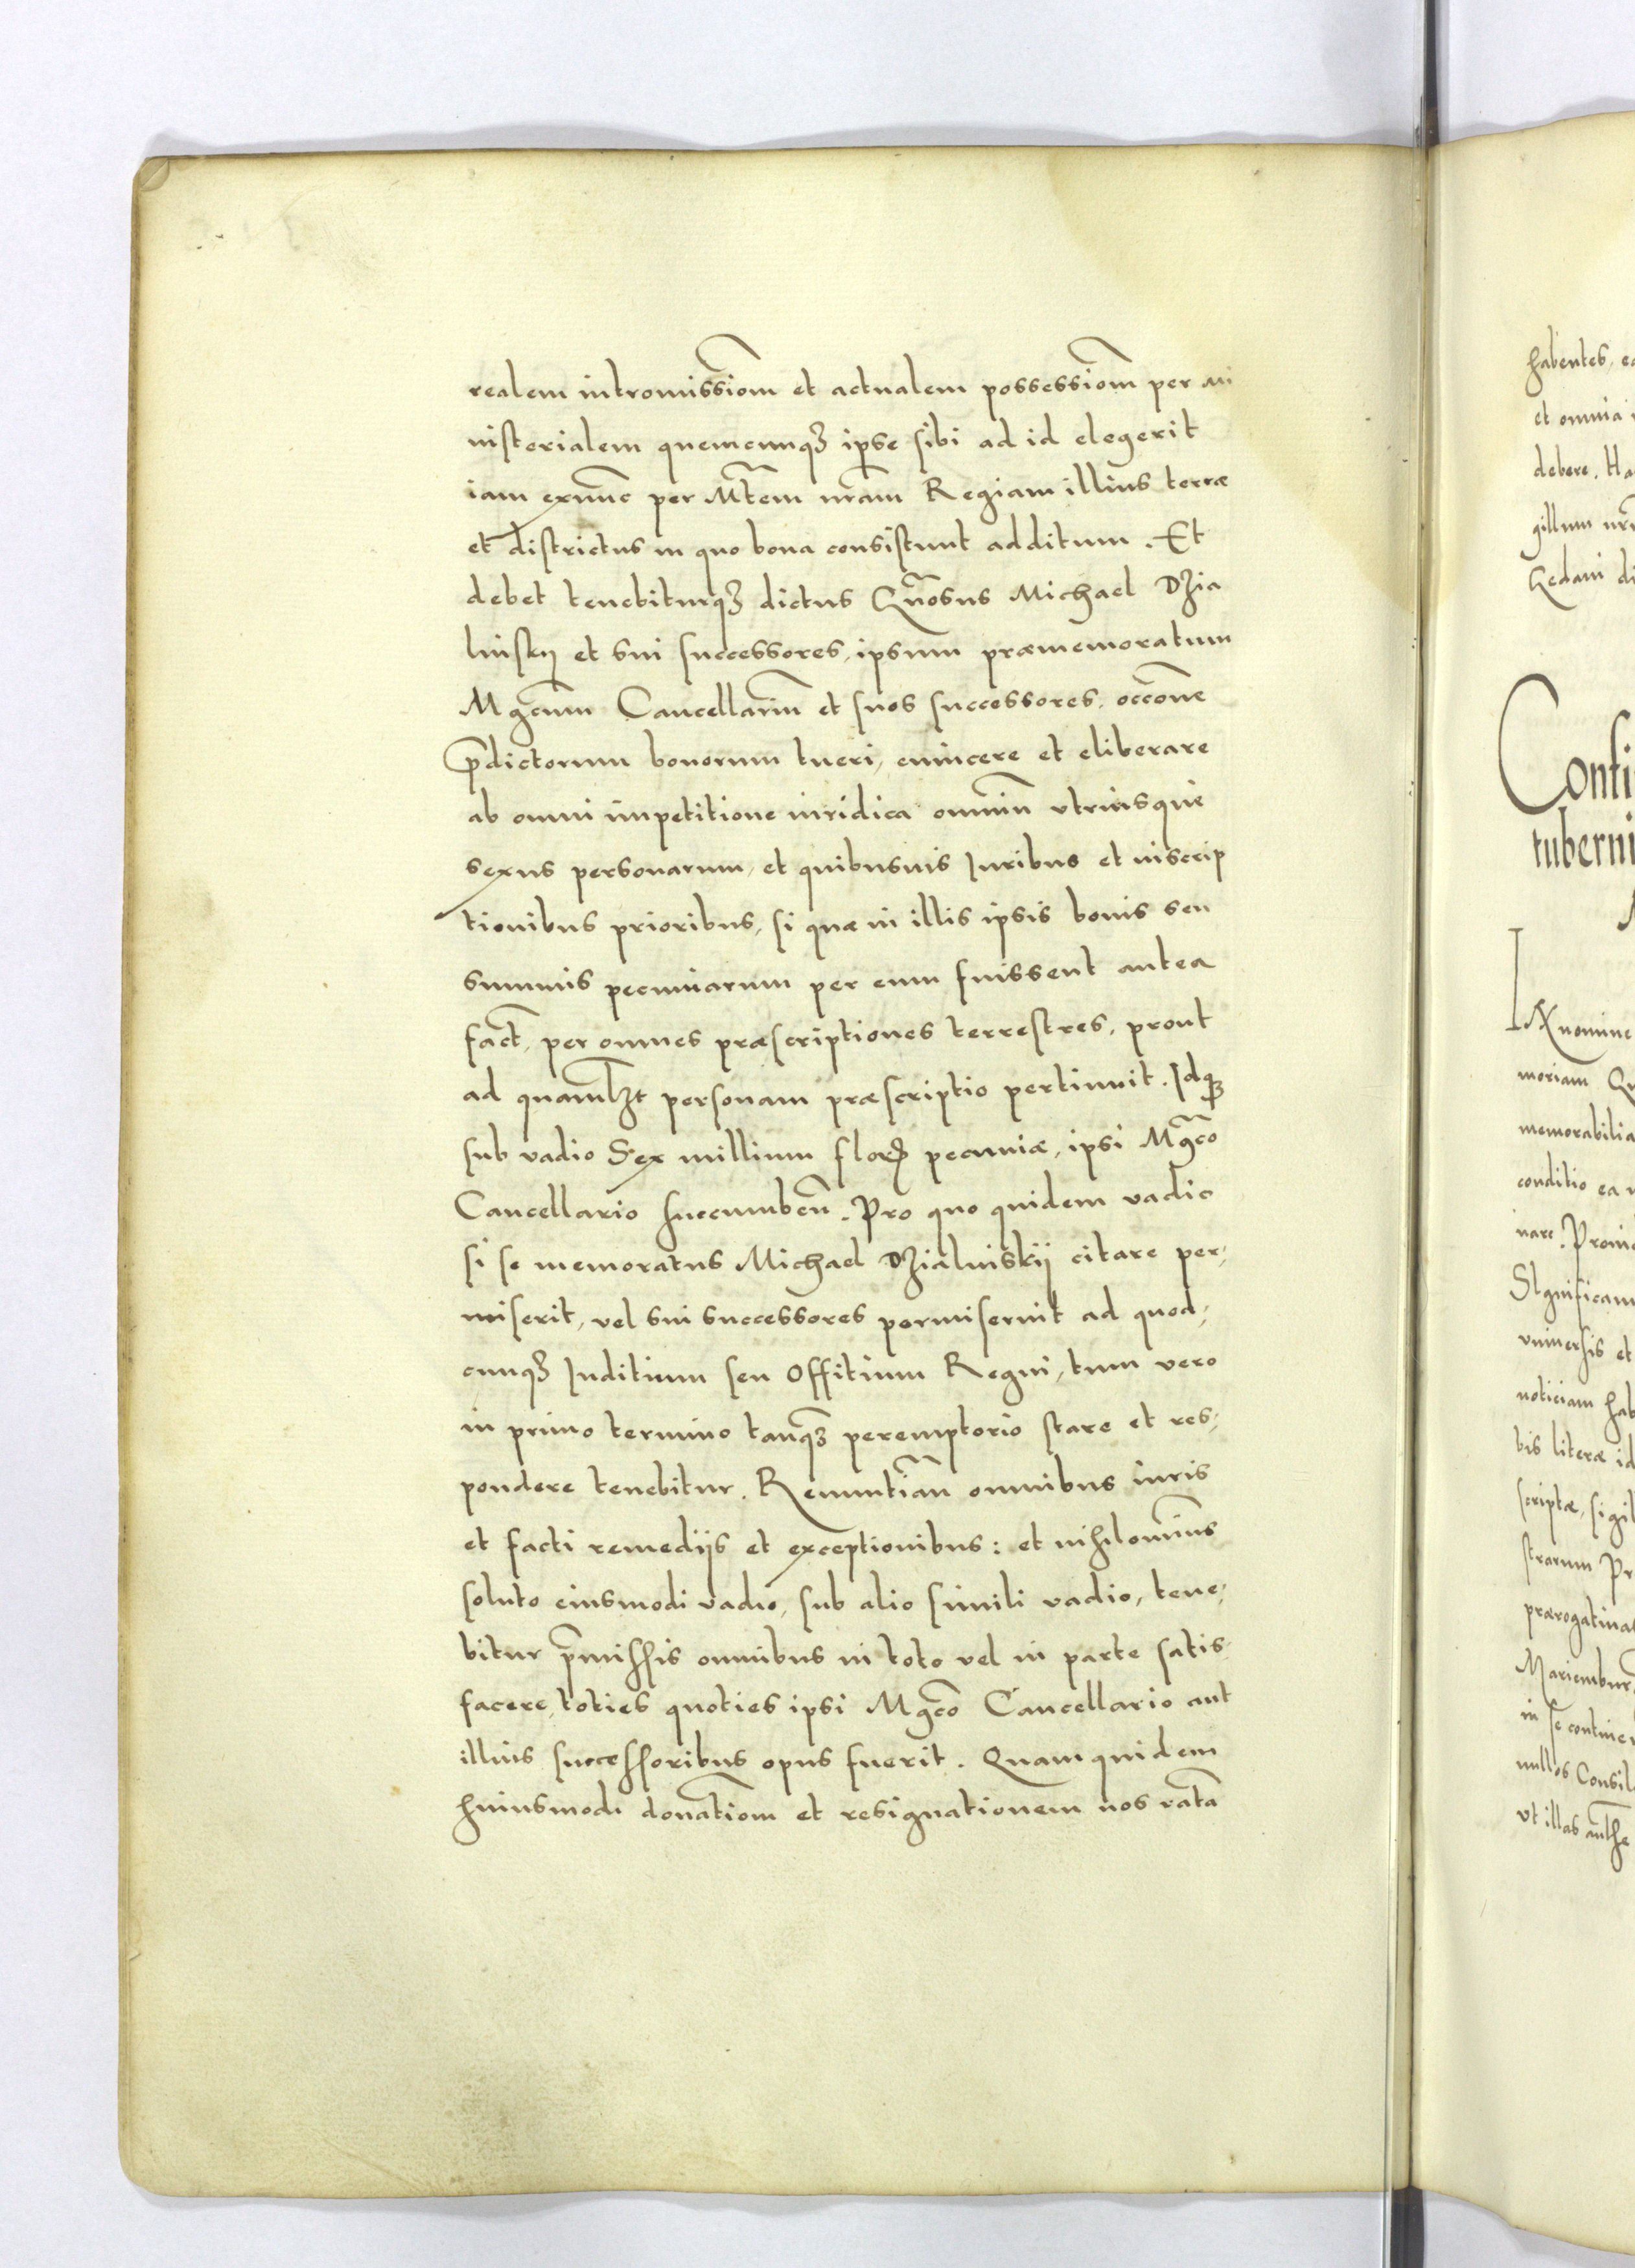 realem intromissiom̃ et actualem possessiom̃ per mi
nisterialem quemcunqꝫ ipse sibi ad id elegerit
iam exnunc per Mt̃em nr̃am Regiam illius terræ
et districtus in quo bona consistunt additum. Et
debet tenebiturqꝫ dictus Gñosus Michael Dzia
linskij et sui successores, ipsum præmemoratum
Mgcũm Cancellariũ et suos successores, occõne
p̃dictorum bonorum tueri, euincere et eliberare
ab omni impetitione iuridica omniũ vtriusque
sexus personarum, et quibusuis Iuribus et inscrip
tionibus prioribus, si quæ in illis ipsis bonis seu
summis pecuniarum per eum fuissent antea
fact̃, per omnes præscriptiones terrestres, prout
ad quamlꝫt personam præscriptio pertinuit. Idqꝫ
sub vadio Sex millium floꝝ pecuniæ, ipsi Mgc̃o
Cancellario succumbeñ. Pro quo quidem vadio
si se memoratus Michael Dzialinskij citare per,
miserit, vel sui successores permiserint ad quod,
cunqꝫ Iuditium seu Offitium Regni, tum vero
in primo termino tanqꝫ peremptorio stare et res,
pondere tenebitur. Renuntiañ omnibus iuris
et facti remediis et exceptionibus: et nihilomin̄us
soluto eiusmodi vadio, sub alio simili vadio, tene,
bitur p̃missis omnibus in toto vel in parte satis,
facere, toties quoties ipsi Mgc̃o Cancellario aut
illius successoribus opus fuerit. Quam quidem
huiusmodi donatiom̃ et resignationem nos rata̅
habentes, ea
et omnia
debere. Ha
gillum nr̃
Gedani di
Confi
tuberni
IN nomine
moriam Qu
memorabilia
conditio ea
nare. Proin
SIgnificam
vniuersis et
noticiam hab
bis literæ id
scriptæ, sigil
strarum Pr
prærogatiuas
Mariembur
in se contine
nullos Consil
vt illas authe